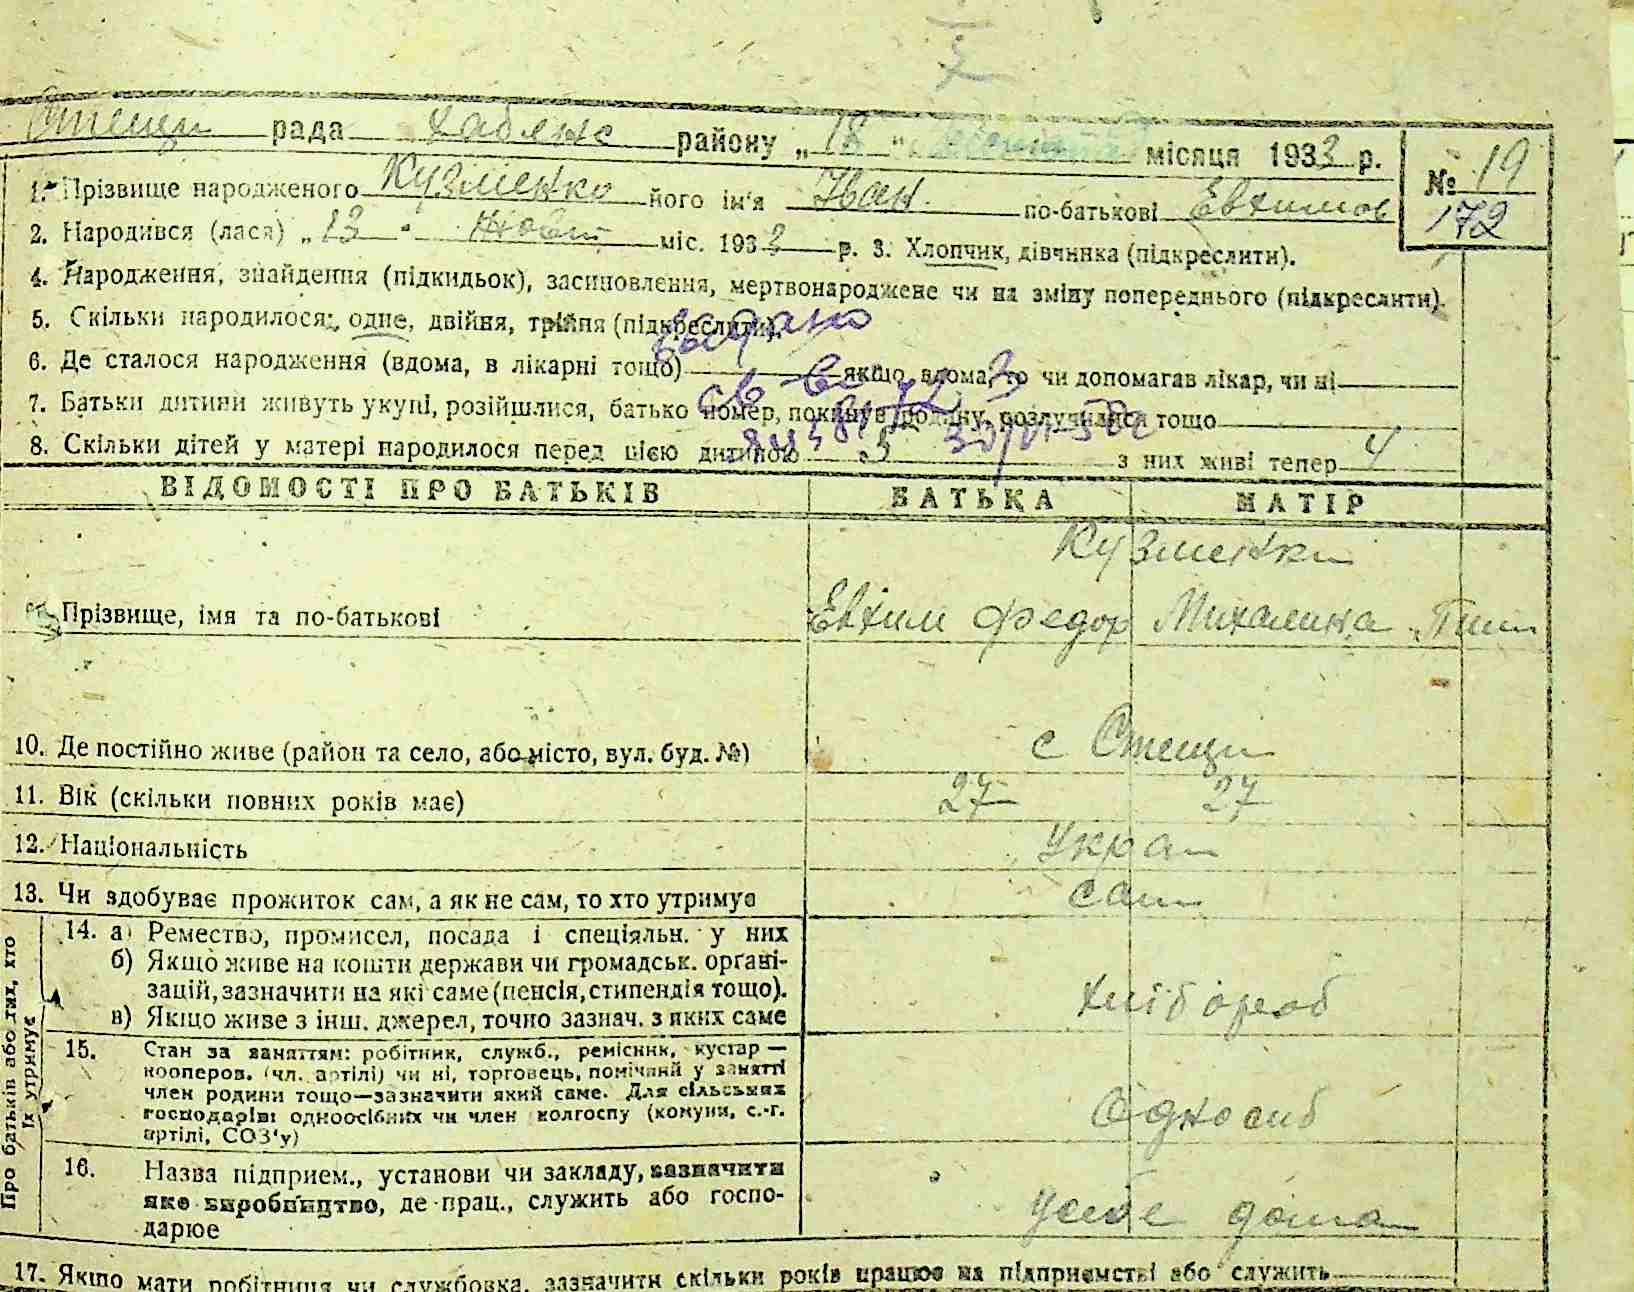 Стещин рада Хабянс району „18“ місяця 1933 р.
№ 19
172
1. Прізвище народженого Кузменко його ім'я Іван по-батькові Евхимов
2. Народився (лася) „13 міс. 1933 р. 3. Хлопчик, дівчинка (підкреслити).
4. Народження, знайдення (підкидьок), засиновлення, мертвонароджене чи на зміну попереднього (підкреслити).
5. Скільки народилося: одне, двійня, трійня (підкреслити).
видано
6. Де сталося народження (вдома, в лікарні тощо) якщо вдома, то чи допомагав лікар, чи ні
7. Батьки дитини живуть укупі, розійшлися, батько помер, покинув родину, розлучилися тощо
8. Скільки дітей у матері народилося перед цією дитиною 5 з них живі тепер 4
ВІДОМОСТІ ПРО БАТЬКІВ БАТЬКА МАТІР
Кузменки
Прізвище, імя та по-батькові Евхим Федор Михалина
10. Де постійно живе (район та село, або місто, вул. буд. №) с Стещин
11. Вік (скільки повних років має) 27 27
12. Національність Укра
13. Чи здобуває прожиток сам, а як не сам, то хто утримує сам
Про батьків або тих, хто їх утримує
14. а) Ремество, промисел, посада і спеціяльн. у них
б) Якщо живе на кошти держави чи громадськ. органі-
зацій, зазначити на які саме (пенсія, стипендія тощо).
в) Якщо живе з інш. джерел, точно зазнач. з яких саме
хлібороб
15. Стан за заняттям: робітник, служб., ремісник, кустар —
кооперов. (чл. артілі) чи ні, торговець, помічний у занятті
член родини тощо—зазначити який саме. Для сільських
господарів: одноосібних чи член колгоспу (комуни, с.-г.
артілі, СОЗ'у)
Односиб
16. Назва підприєм., установи чи закладу, зазначити
яке виробництво, де прац., служить або госпо-
дарює
усебе дома
17. Якщо мати робітниця чи службовка, зазначити скільки років працює на підприємстві або служить